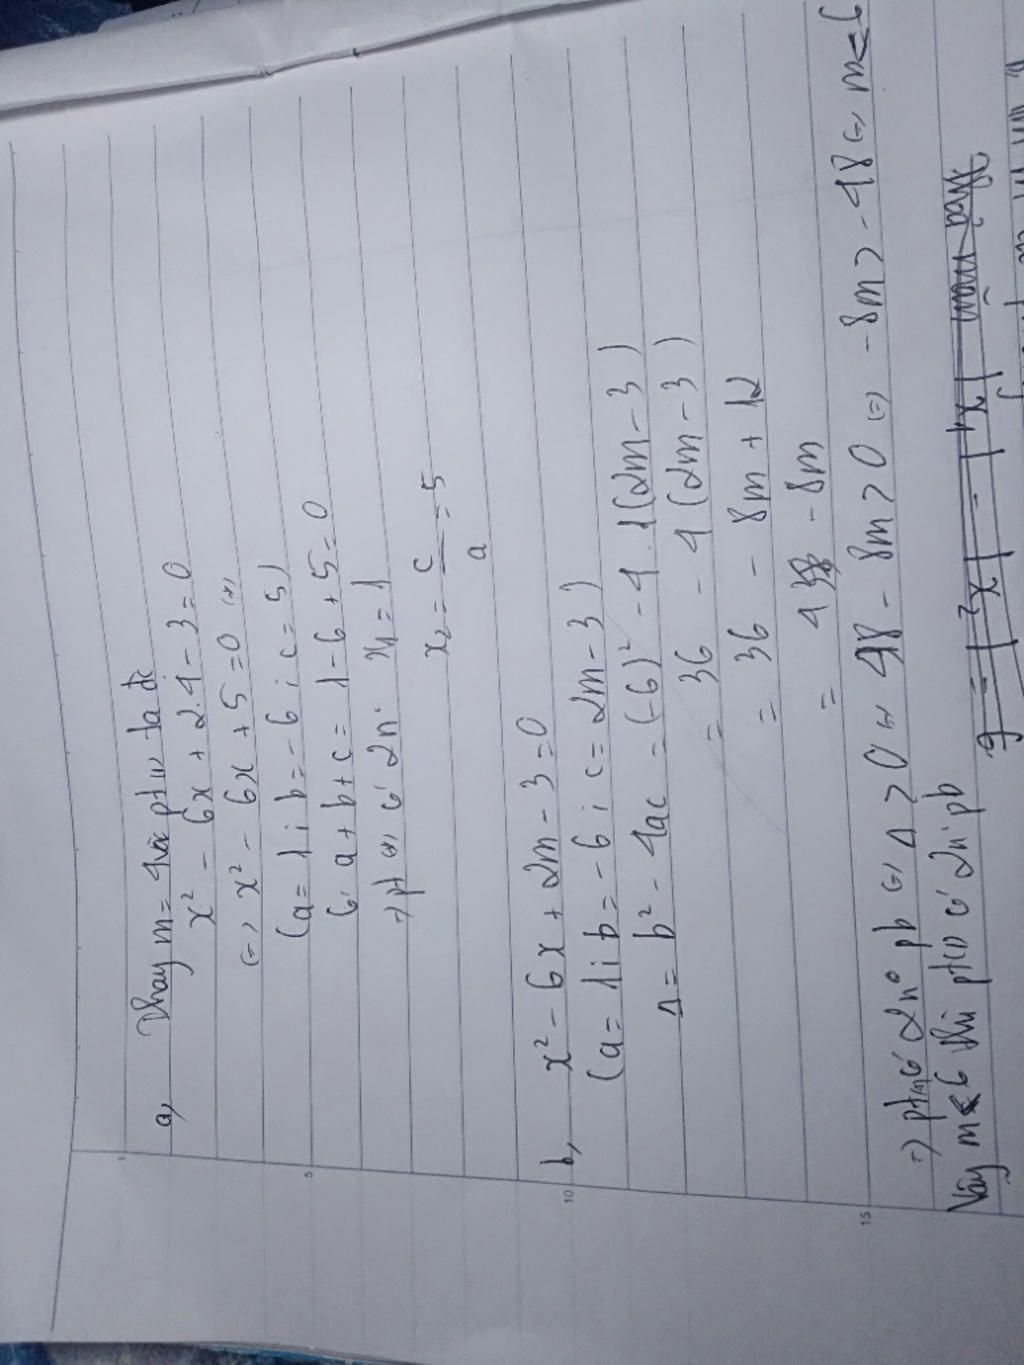 a, Thay m = 4 vào pt(1) ta đc
x² - 6x + 2.4 - 3 = 0
(=) x² - 6x + 5 = 0 (*)
(a = 1 ; b = -6 ; c = 5)
Có a + b + c = 1 - 6 + 5 = 0
=) pt (*) có 2n° x₁ = 1
x₂ = c/a = 5
b, x² - 6x + 2m - 3 = 0
(a = 1 ; b = -6 ; c = 2m - 3)
Δ = b² - 4ac = (-6)² - 4.1(2m - 3)
= 36 - 4(2m - 3)
= 36 - 8m + 12
= 48 - 8m
=) pt(1) có 2n° pb (=) Δ > 0 (=) 48 - 8m > 0 (=) -8m > -48 (=) m < 6
Vậy m < 6 thì pt(1) có 2n° pb